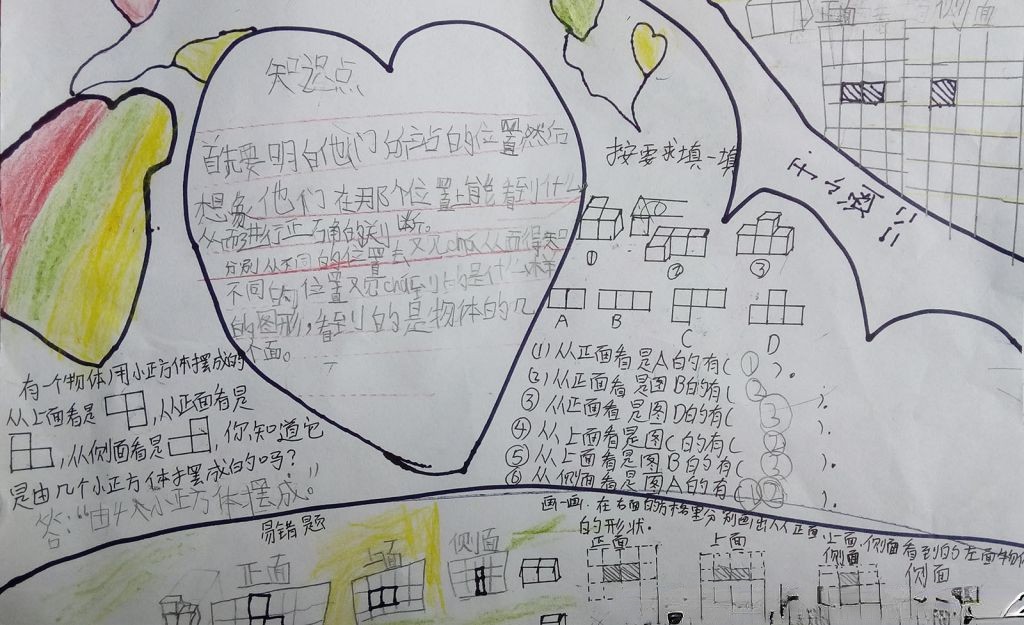 知识点
首先要明白他们所站的位置然后
想象他们在那个位置上能看到什么
从而进行正确的判断。
分别从不同的位置去观chá从而得知
不同的位置观chá到的是什么样
的图形,看到的是物体的几
个面。
有一个物体,用小正方体摆成的
从上面看是 ,从正面看是
,从侧面看是 ,你知道它
是由几个小正方体摆成的吗?
答:“由4个小正方体摆成。”
按要求填一填
① ② ③
A B C D
(1)从正面看是A的有( ① )。
(2)从正面看是图B的有( ② )。
③从正面看是图D的有( ③ )。
④从上面看是图C的有( ② )。
⑤从上面看是图B的有( ③ )。
⑥从侧面看是图A的有( ①② )。
正面 侧面
易错题
正面 上面 侧面
画一画,在右面的方格里分别画出从正面,上面,侧面看到的左面物体
的形状。
正面 上面 侧面 侧面